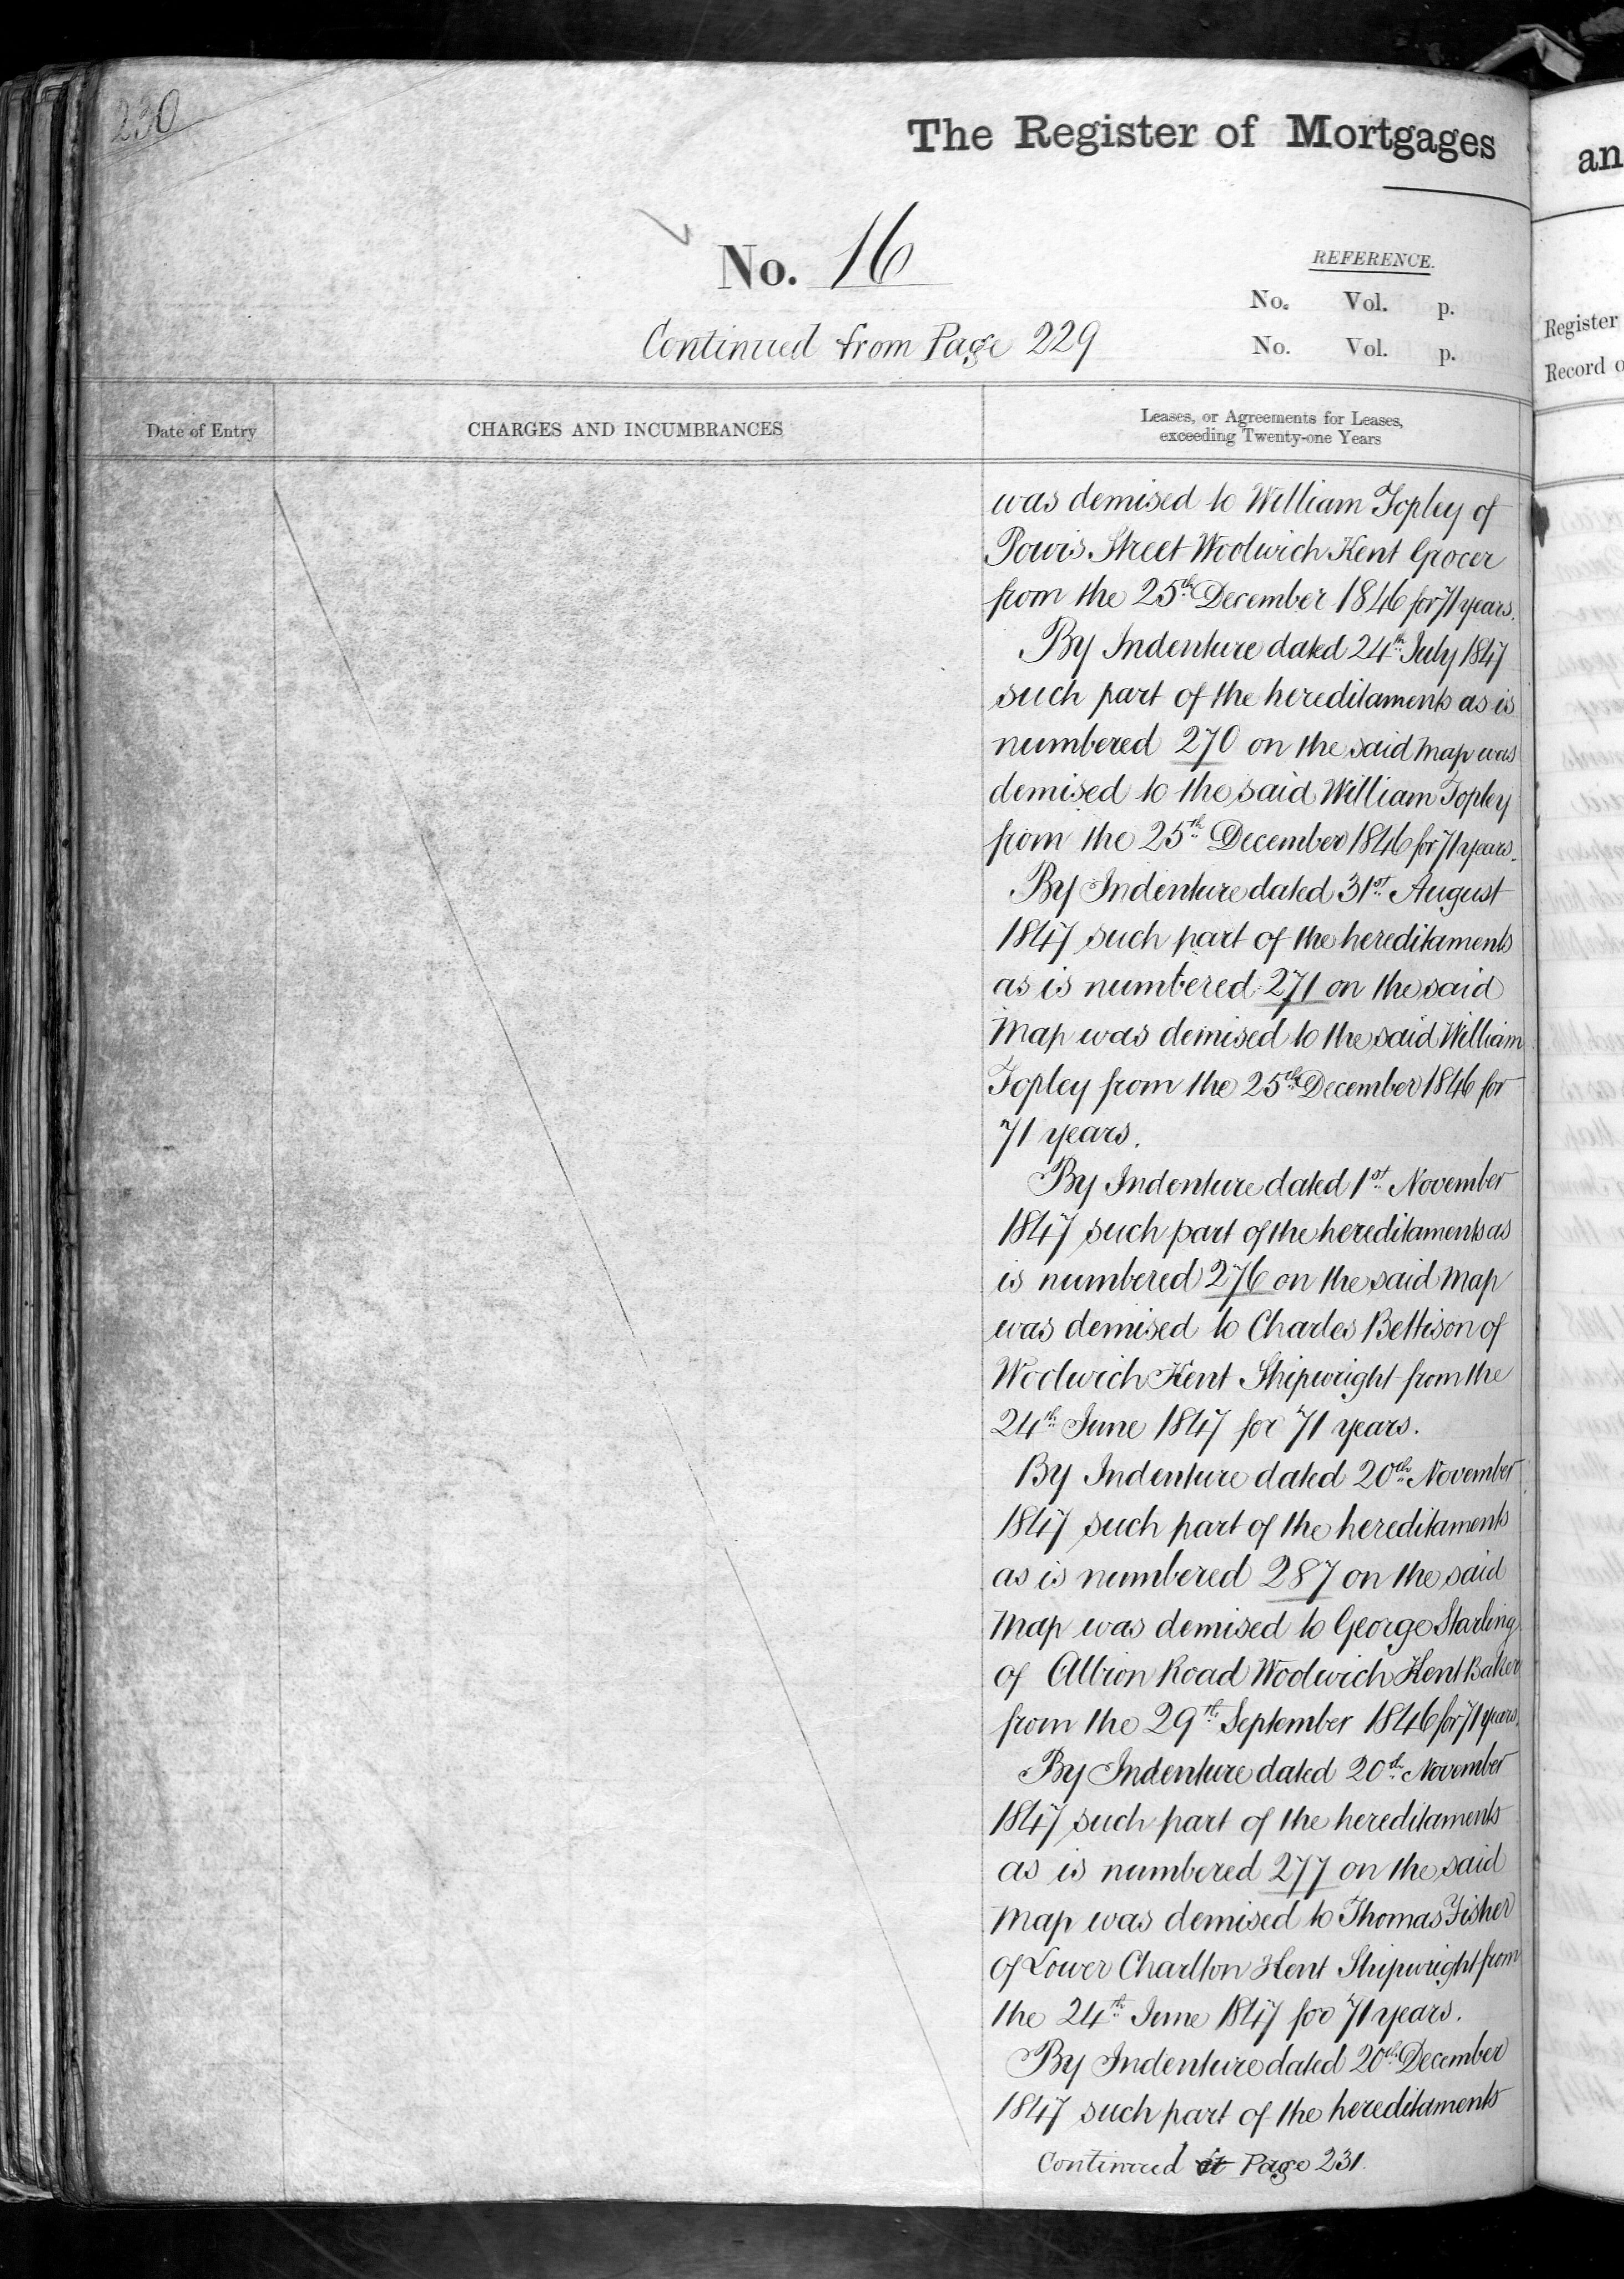 230
The Register of Mortgages
an
No. 16
REFERENCE.
No. Vol. p.
Continued from Page 229
No. Vol. p.
Register
Record o
Date of Entry
CHARGES AND INCUMBRANCES
Leases, or Agreements for Leases,
exceeding Twenty-one Years
was demised to William Topley of
Powis Street Woolwich Kent Grocer
from the 25th December 1846 for 71 years.
By Indenture dated 24th July 1847
such part of the hereditaments as is
numbered 270 on the said Map was
demised to the said William Topley
from the 25th December 1846 for 71 years.
By Indenture dated 31st August
1847 such part of the hereditaments
as is numbered 271 on the said
Map was demised to the said William
Topley from the 25th December 1846 for
71 years.
By Indenture dated 1st November
1847 such part of the hereditaments as
is numbered 276 on the said Map
was demised to Charles Bettison of
Woolwich Kent Shipwright from the
24th June 1847 for 71 years.
By Indenture dated 20th November
1847 such part of the hereditaments
as is numbered 287 on the said
Map was demised to George Starling
of Albion Road Woolwich Kent Baker
from the 29th September 1846 for 71 years.
By Indenture dated 20th November
1847 such part of the hereditaments
as is numbered 277 on the said
Map was demised to Thomas Fisher
of Lower Charlton Kent Shipwright from
the 24th June 1847 for 71 years.
By Indenture dated 20th December
1847 such part of the hereditaments
Continued at Page 231.